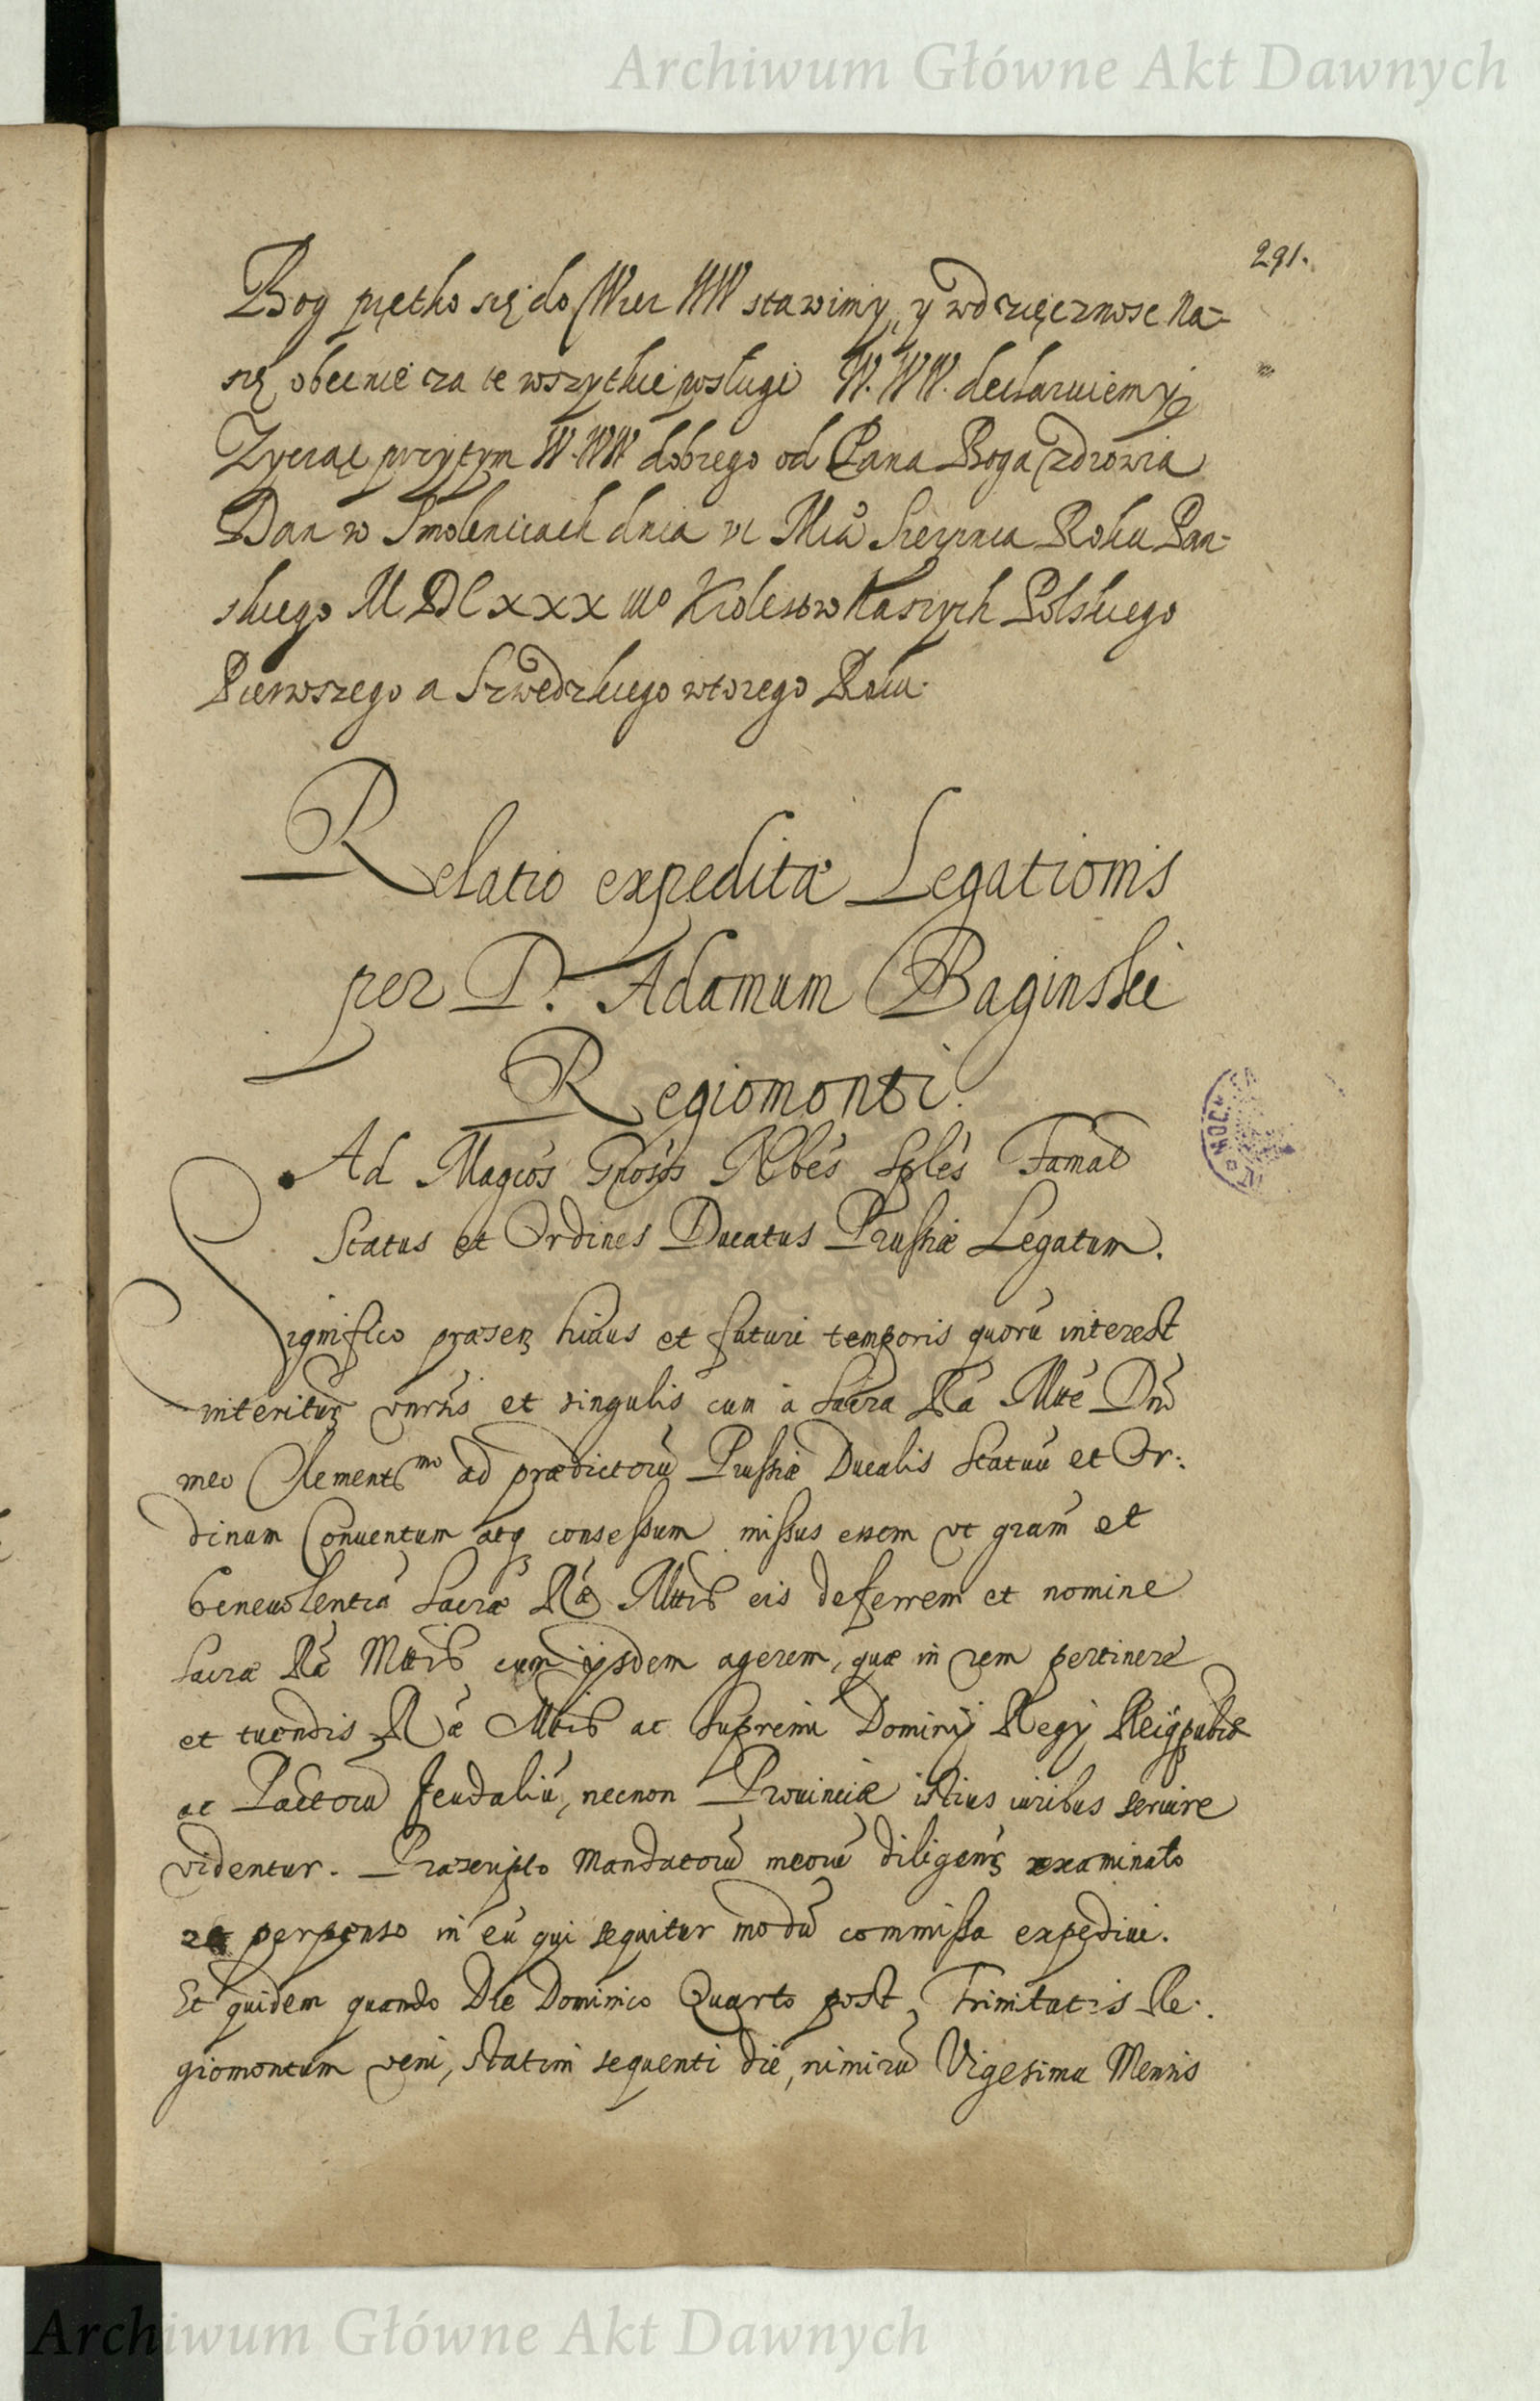 Archiwum Główne Akt Dawnych
291.
Bog prętko się do Wier WW stawimy, y wdzięcznosc na-
szę obecnie za te wszytkie posługi W. WW. declaruiemy
Zycząc przytym W. WW dobrego od Pana Boga zdrowia
Dan w Smolenicach dnia VI Mca Sierpnia Roku Pan-
skiego MDCXXX IIIo Krolestw Naszych Polskiego
Pierwszego a Szwedzkiego wtorego Roku.
Relatio expeditæ Legationis
per D. Adamum Baginski
Regiomonti.
Ad Magcos Gnosos Nbles Sples Famat
Status et Ordines Ducatus Prussiæ Legatum.
Significo præsen huius et futuri temporis quorū interest
intererit vnrsis et singulis cum à Sacra Ra Mtte Dno
meo Clementmo ad prædictorū Prussiæ Ducalis Statuū et Or:
dinum Conuentum atq consessum missus essem vt gram et
beneuolentiā Sacræ Ræ Mttis eis deferrem et nomine
Sacræ Ræ Mttis cum ijsdem agerem, quæ in rem pertinere
et tuendis Ræ Mttis ac Supremi Dominij Regij Reiqpublicæ
ac Pactorū feudaliū, necnon Prouinciæ istius iuribus seruire
videntur. Præscripto mandatorū meorū diligenr examinato
et perpenso in eū qui sequitur modū commissa expediui.
Et quidem quando Die Dominico Quarto post Trinitatis Re:
giomontum veni, statim sequenti die, nimirū Vigesima Mensis
Archiwum Główne Akt Dawnych